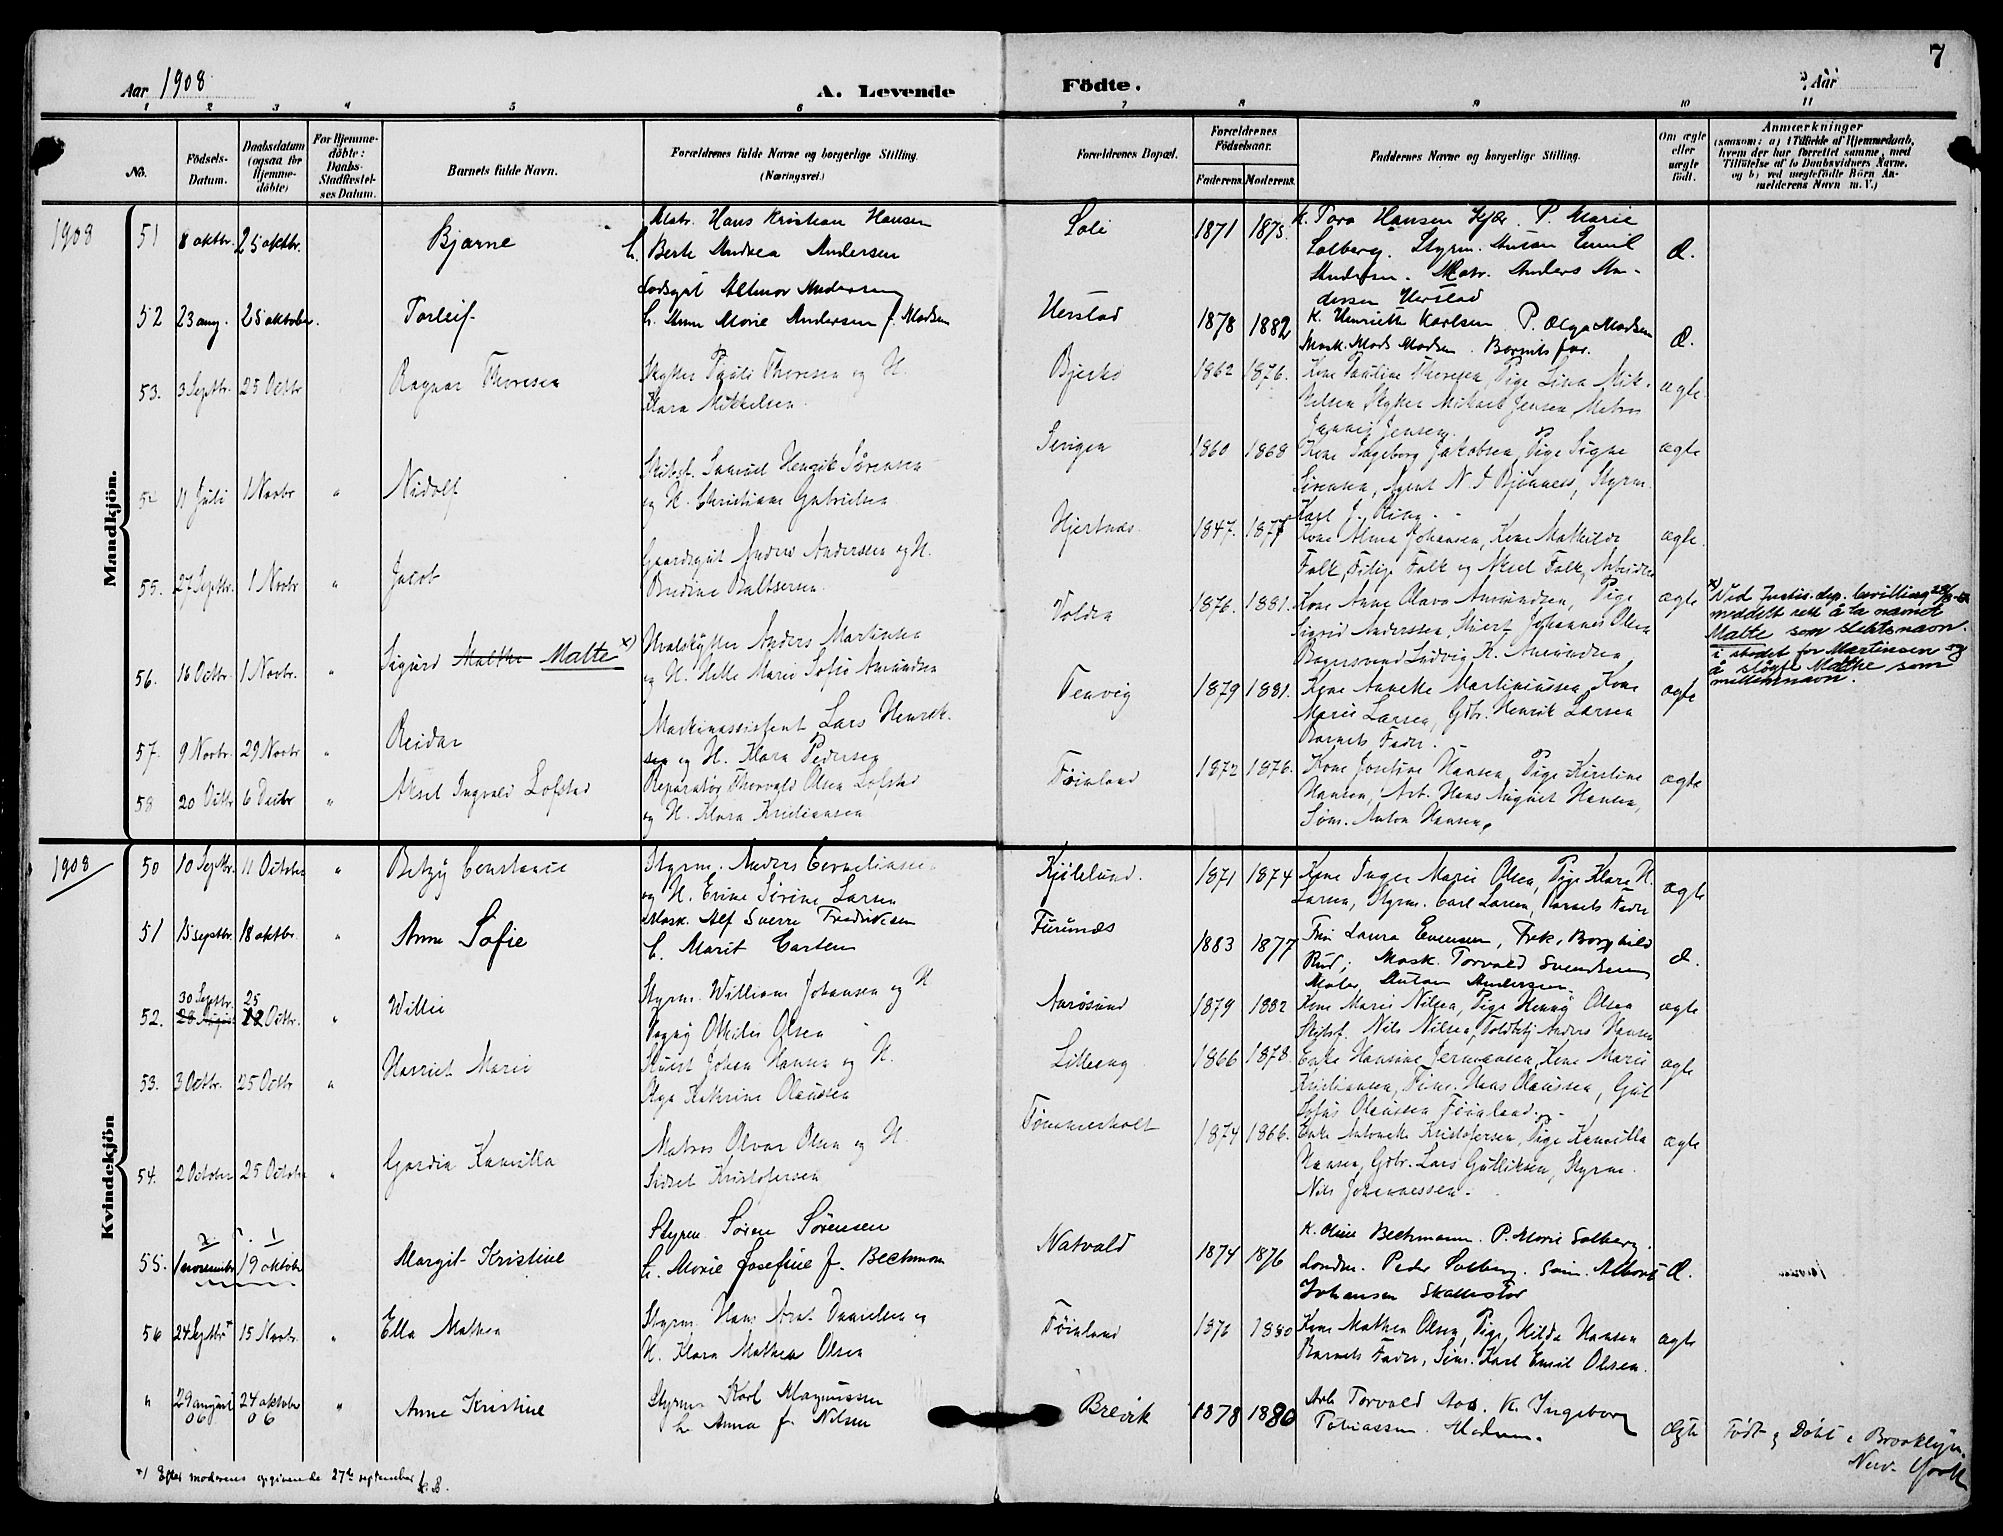 7
Aar 1908
A. Levende
Födte.
Aar
1 2 3 4 5 6 7 8 9 10 11
No.
Födsels-Datum.
Daabsdatum (ogsaa for Hjemmedöbte)
For Hjemmedöbte: Daabs-Stadfæstelses Datum.
Barnets fulde Navn.
Forældrenes fulde Navne og borgerlige Stilling.
(Næringsvei.)
Forældrenes Bopæl.
Forældrenes Födselsaar.
Faderens. Moderens.
Faddernes Navne og borgerlige Stilling.
Om ægte eller uægte födt.
Anmærkninger
(saasom: a) i Tilfælde af Hjemmedaab,
hvem der har forrettet samme, med
Tilföielse af to Daabsvidners Navne,
og b) ved uægtefödte Börn Anmelderens Navn m. V.)
Mandkjön.
1908
51 8 oktbr. 25 oktbr. Bjarne
Matr. Hans Kristian Hansen
h. Berte Andrea Andersen
1871 1875.
K. Tora Hansen P. Marie
Solberg. Styrm. Anton Emil
Andersen. Matr. Anders An-
dersen Herstad
Æ.
52 23 aug. 25 oktober. Torleif
h. Anne Marie Andersen f. Madsen
Herstad 1878 1882
K. Henriette Karlsen P. Olga Madsen
Mask. Mads Madsen. Barnets far.
Æ.
53. 3 Septbr. 25 Octbr Ragnar Thoresen
Skytter Pauli Thoresen og H.
Klara Mikkelsen.
Bjerkø 1862 1876.
Kone Pauline Thoresen, Pige Lina Mik-
kelsen Skytter Mikael Jensen, Matros
Jensen.
ægte.
54 11 Juli 1 Novbr " Nidolf
Skibsf. Samuel Henrik Sørensen
og H. Christiane Gabrielsen
1860 1868
Kone Ingeborg Jakobsen, Pige Signe
Sørensen, Agent N. J. Bjønness, Styrm.
Karl J.
ægte
55. 27 Septbr. 1 Novbr " Jacob
Gaardsgut Anders Andersen og H.
Bredine Baltsersen.
Hjertnæs. 1847. 1877
Kone Alma Johansen, Kone Mathilde
Falk, Falk og Aksel Falk, Arbeidere
ægte.
56. 16 Octbr 1 Novbr. " Sigurd Malthe Malte x)
Hvalskytter Anders Martinsen
og H. Helle Marie Sofie Amundsen
Volden 1876. 1881.
Kone Anne Olava Amundsen, Pige
Sigrid Anderssen, Stuert Johannes Olsen
Ludvig K. Amundsen
ægte
x) Ved Justis.dep. bevilling
meddelt rett å ta navnet
Malte som slektsnavn
i stedet for Martinsen og
å sløyfe Malthe som
mellemnavn.
57. 9 Novbr. 29 Novbr " Reidar
Maskinassistent Lars Henrik-
sen og H. Klara Pedersen
Tenvig 1879 1881.
Kone Annette Martiniussen, Kone
Marie Larsen, Gdbr. Henrik Larsen
Barnets Fader.
ægte
58 20 Octbr 6 Decbr " Aksel Ingvald Lofstad
Reparatør Thorvald Olsen Lofstad
og H. Klara Kristiansen
Føinland 1872 1876.
Kone Josefine Hansen, Pige Kirstine
Hansen, Arb. Hans August Hansen,
Søm. Anton Hansen.
ægte
Kvindekjön
1908
50 10 Septbr. 11 October " Betzy Constance
Styrm. Anders Corneliussen
og H. Erine Sirine Larsen
Kjølelund. 1871 1874
Kone Inger Marie Olsen, Pige Klara H.
Larsen, Styrm. Carl Larsen, Barnets Fader
ægte
51 15 septbr. 18 oktbr. " Anne Sofie
Mask. Alf Sverre Fredriksen
h. Marit Carlsen
Furunæs 1883 1877
Fru Laura Evensen, Frk. Borghild
Rud; Mask. Torvald Svendsen
Maler Anton Andersen.
Æ.
52. 30 Septbr. 28 August 25 12 Octbr. " Willie
Styrm. William Johansen og H
Othilie Olsen
Aarøsund 1879 1882
Kone Marie Nilsen, Pige Henny Olsen
Skibsf. Nils Nilsen, Toldbetj Anders Hansen
ægte
53. 3 Octbr. 25 Octbr " Harriet Marie
Stuert Johan Hansen og H.
Olga Kathrine Olaussen
1866 1878.
Enke Hansine Jermansen, Kone Marie
Kristiansen, Hans Olaussen, Gut
Sofus Olaussen Føinland.
ægte
54. 2 October 25 October " Gerdia Kamilla
Matros Olvar Olsen og H.
Sidsel Kristofersen
Tømmerholt 1874 1866.
Enke Antonette Kristofersen, Pige Kamilla
Hansen, Gdbr. Lars Gulliksen, Styrm.
Nils Johannessen.
ægte
55. 1 november 19 oktober Margit Kristine
Styrm Søren Sørensen
h. Marie Josefine f. Bechman
Natvald 1874 1876
K. Oline Bechmann. P. Marie Solberg.
Londm. Peder Solberg. Søm. Albert
Johansen Skallestad
Æ.
56 24 Septbr x 15 Novbr. " Ella Mathea
Styrm. Hans Arnt Danielsen og
H. Klara Mathea Olsen
Føinland 1876 1880
Kone Mathea Olsen, Pige, Hilda Hansen
Barnets Fader, Søm. Karl Emil Olsen.
ægte
" 29 august 06 24 oktober 06 " Anne Kristine
Styrm Karl Magnussen
h. Anna f. Nilsen
Brevik 1878 1880
Arb Torvald Aas. K. Ingeborg
Tobiassen
Ægte
Født og Døbt i Brooklyn.
New-York
x) Efter moderens opgivende 27de september